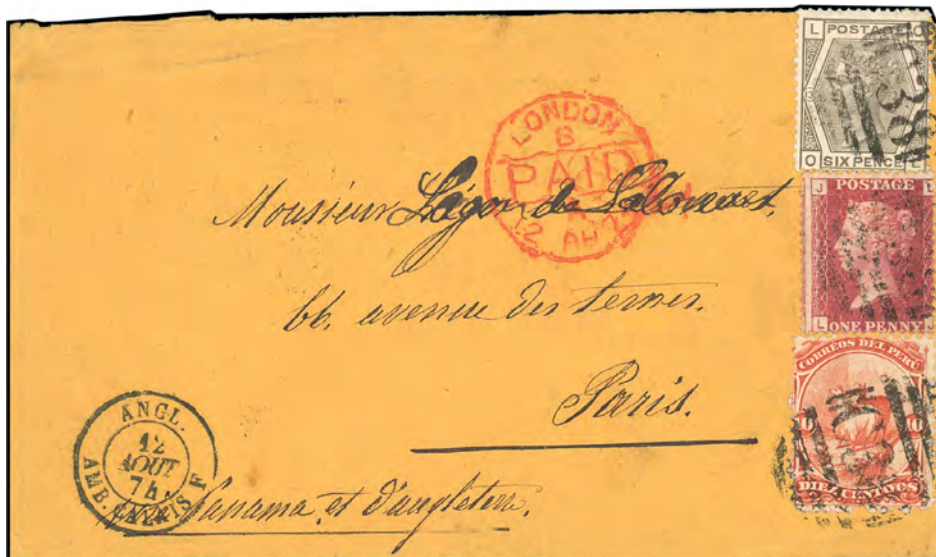 L POSTAGE O
O SIX PENCE L
J POSTAGE L
L ONE PENNY J
CORREOS DEL PERÚ
10 10
DIEZ CENTAVOS
LONDON
B
PAID
12 AU 74
Monsieur Légon de
66. avenue des ternes.
Paris.
ANGL.
12
AOUT
74
AMB. CALAIS F
Panama et d'angleterre.